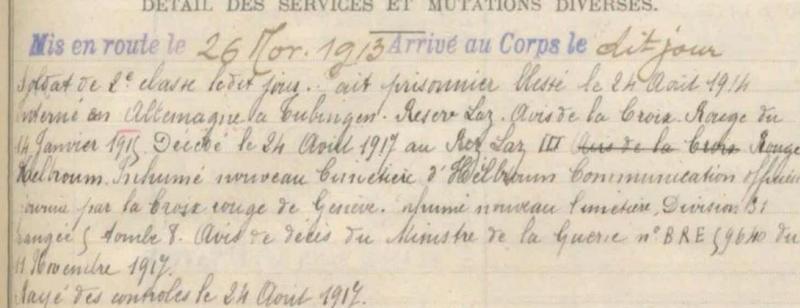 DÉTAIL DES SERVICES ET MUTATIONS DIVERSES.
Mis en route le 26 Nov. 1913 Arrivé au Corps le dit jour
Soldat de 2e classe le dit jour. ait prisonnier blessé le 24 Août 1914
interné en Allemagne à Tubingen. Reserv Laz. Avis de la Croix. Rouge du
14 Janvier 1915. Décédé le 24 Août 1917 au Rez Laz III Avis de la Croix Rouge
Heilbroum. Inhumé nouveau Cimetière d'Heilbroum Communication
fournie par la Croix rouge de Genève. nouveau Cimetière, Division 31
rangée 5 tombe 8. Avis de décès du Ministre de la Guerre n° BRE 59640 du
11 Novembre 1917.
Rayé des controles le 24 Août 1917.